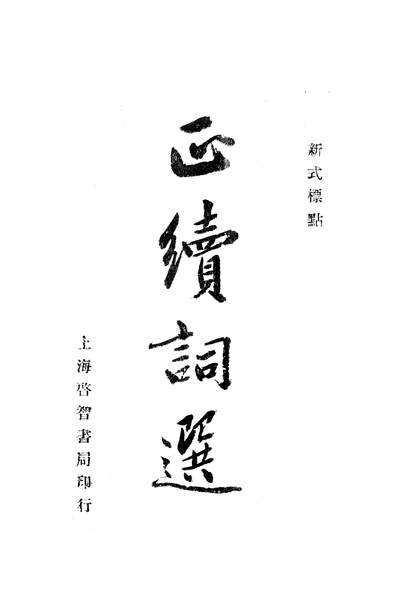 新式標點
正續詞選
上海啓智書局印行